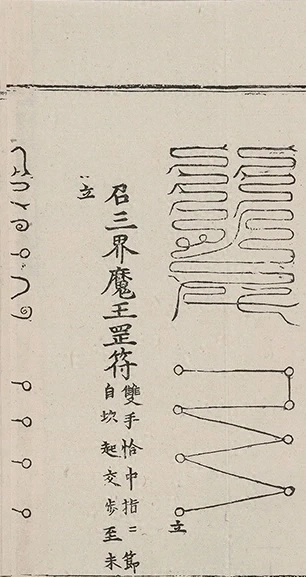 立
召三界魔王罡符
雙手恰中指二節
自坎起交步至未
立